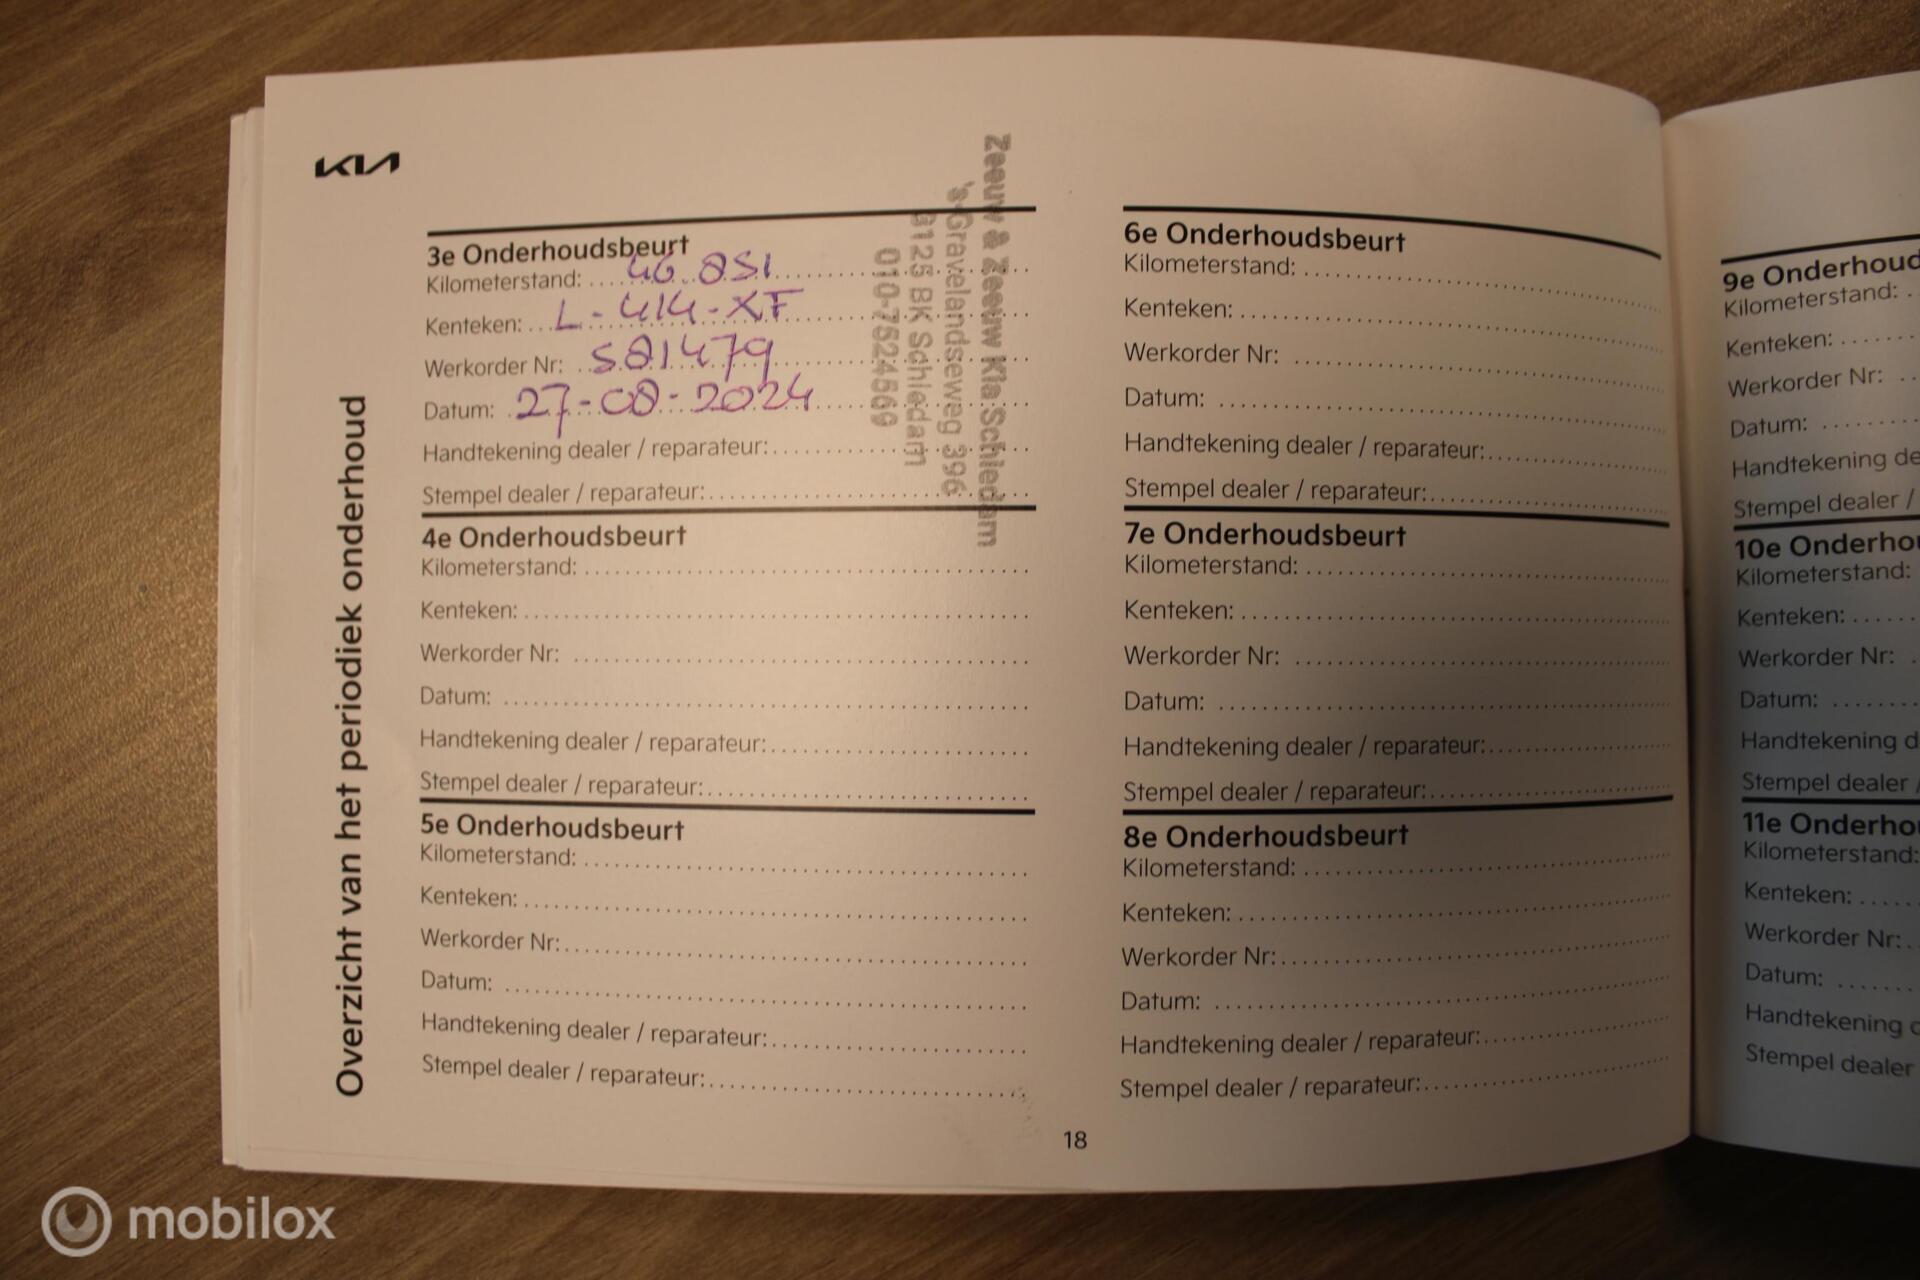 KIA
Overzicht van het periodiek onderhoud
3e Onderhoudsbeurt
Kilometerstand: 46 851
Kenteken: L-414-XF
Werkorder Nr: S81479
Datum: 27-08-2024
Handtekening dealer / reparateur:
Stempel dealer / reparateur:
Zeeuw & Zeeuw Kia Schiedam
's-Gravelandseweg 396
3125 BK Schiedam
010-7524569
4e Onderhoudsbeurt
Kilometerstand:
Kenteken:
Werkorder Nr:
Datum:
Handtekening dealer / reparateur:
Stempel dealer / reparateur:
5e Onderhoudsbeurt
Kilometerstand:
Kenteken:
Werkorder Nr:
Datum:
Handtekening dealer / reparateur:
Stempel dealer / reparateur:
6e Onderhoudsbeurt
Kilometerstand:
Kenteken:
Werkorder Nr:
Datum:
Handtekening dealer / reparateur:
Stempel dealer / reparateur:
7e Onderhoudsbeurt
Kilometerstand:
Kenteken:
Werkorder Nr:
Datum:
Handtekening dealer / reparateur:
Stempel dealer / reparateur:
8e Onderhoudsbeurt
Kilometerstand:
Kenteken:
Werkorder Nr:
Datum:
Handtekening dealer / reparateur:
Stempel dealer / reparateur:
18
9e Onderhoud
Kilometerstand:
Kenteken:
Werkorder Nr:
Datum:
Handtekening de
Stempel dealer /
10e Onderho
Kilometerstand:
Kenteken:
Werkorder Nr:
Datum:
Handtekening d
Stempel dealer /
11e Onderho
Kilometerstand:
Kenteken:
Werkorder Nr:
Datum:
Handtekening
Stempel dealer
mobilox